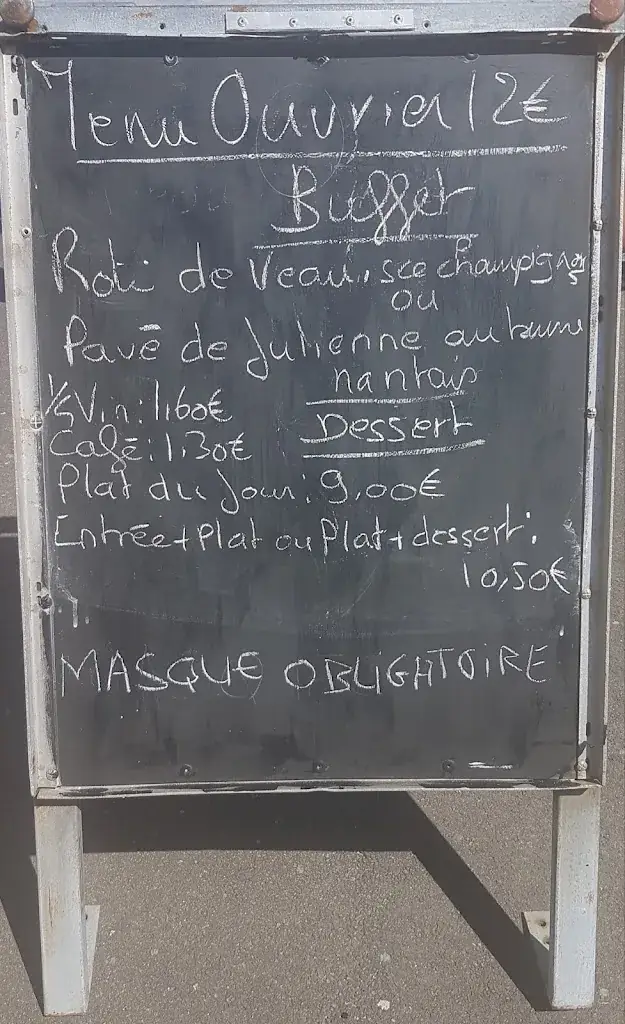 Menu Ouvrier 12€
Buffet
Roti de Veau, sce champignons
ou
Pavé de Julienne au beurre
nantais
½ Vin : 1,60€
Dessert
Café : 1,30€
Plat du Jour : 9,00€
Entrée + Plat ou Plat + dessert :
10,50€
MASQUE OBLIGATOIRE